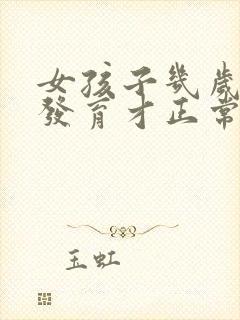 女孩子幾歲
發育才正常
玉虹